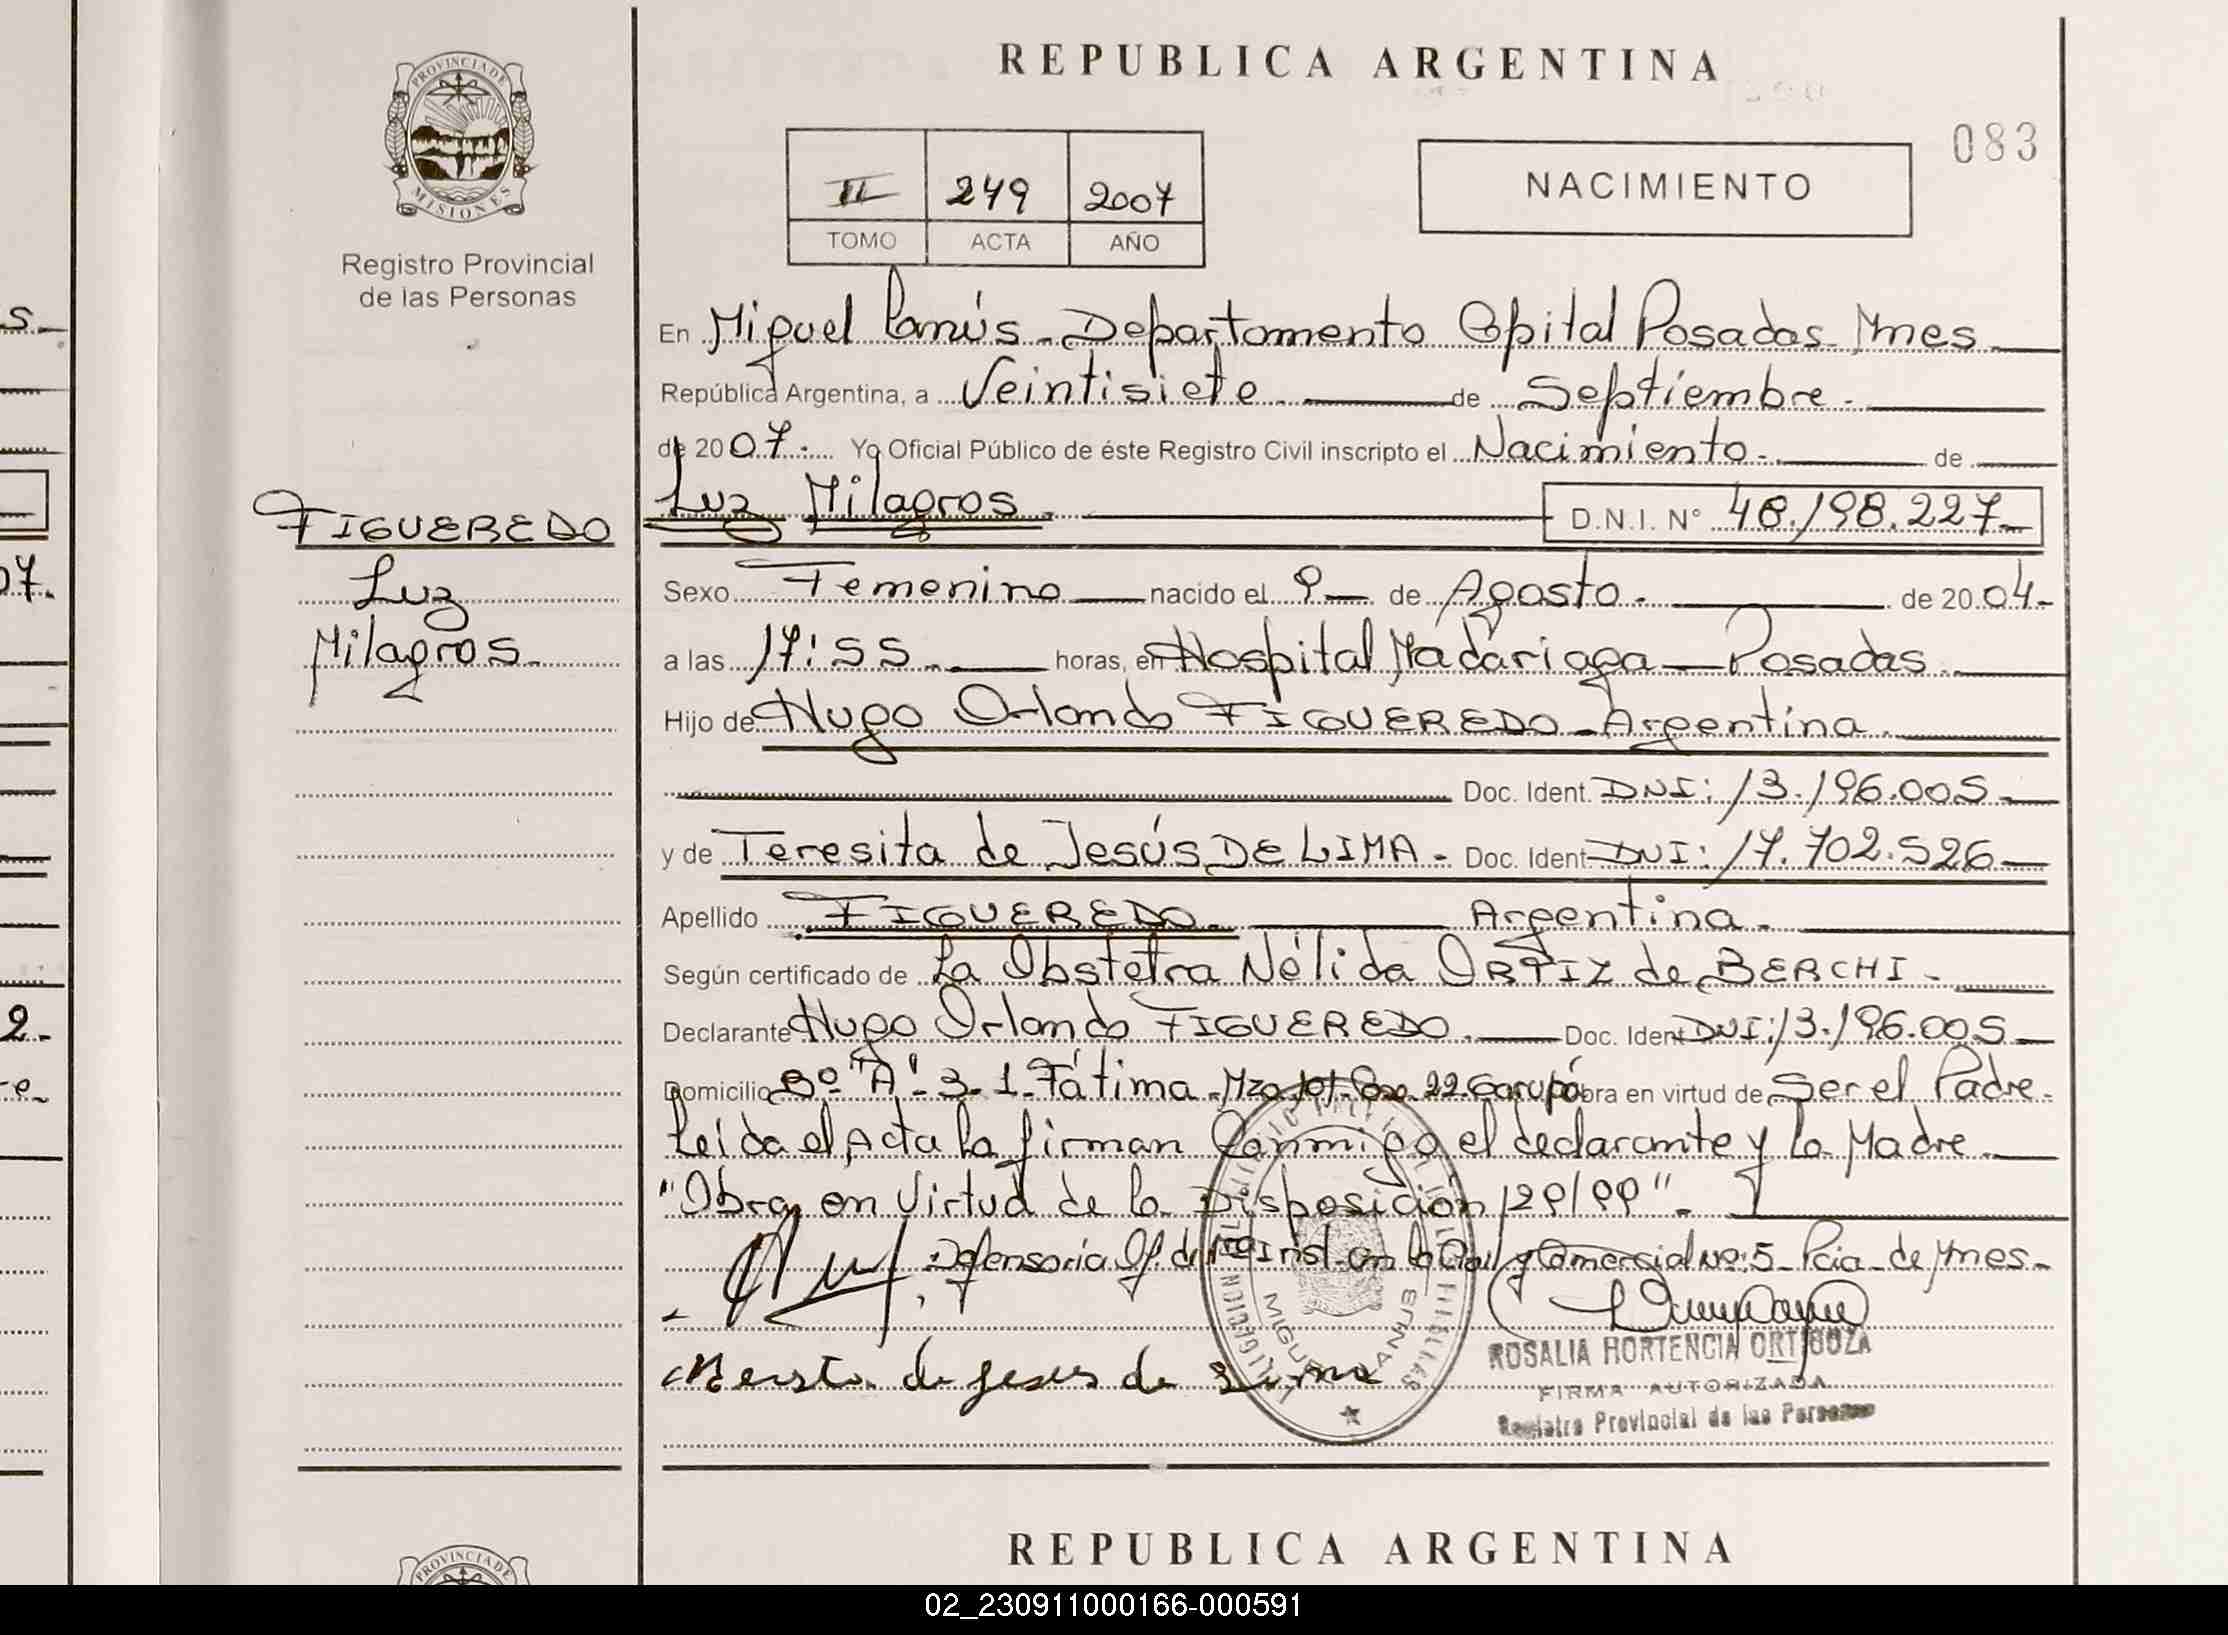 REPUBLICA ARGENTINA
083
PROVINCIA DE
MISIONES
Registro Provincial
de las Personas
II 249 2007
TOMO ACTA AÑO
NACIMIENTO
En Miguel Lanús - Departamento Capital Posadas Mnes
República Argentina, a Veintisiete de Septiembre.
de 2007. Yo Oficial Público de éste Registro Civil inscripto el Nacimiento. de
Luz Milagros. D.N.I. N° 48.198.227
FIGUEREDO
Luz
Milagros.
Sexo Femenino nacido el 9 de Agosto. de 2004-
a las 17:55 horas, en Hospital Madariaga - Posadas.
Hijo de Hugo Orlando FIGUEREDO - Argentina.
Doc. Ident. DNI: 13.196.005
y de Teresita de Jesús DE LIMA - Doc. Ident. DNI: 17.702.526
Apellido FIGUEREDO. Argentina.
Según certificado de La Obstetra Nélida ORTIZ de BERCHI -
Declarante Hugo Orlando FIGUEREDO. Doc. Ident DNI: 13.196.005
Domicilio Bº "A" 3-1 Fátima Mza 101 Casa 22 Garupá obra en virtud de Ser el Padre.
Leída el Acta la firman Conmigo el declarante y la Madre.
"Obra en Virtud de la Disposición 129/99".
Defensoria Of. de 1ra Inst. en lo Civil y Comercial Nº: 5 - Pcia. de Mnes.
MIGUEL LANUS
ROSALIA HORTENCIA ORTIGOZA
FIRMA AUTORIZADA
Registro Provincial de las Personas
REPUBLICA ARGENTINA
PROVINCIA DE
02_230911000166-000591